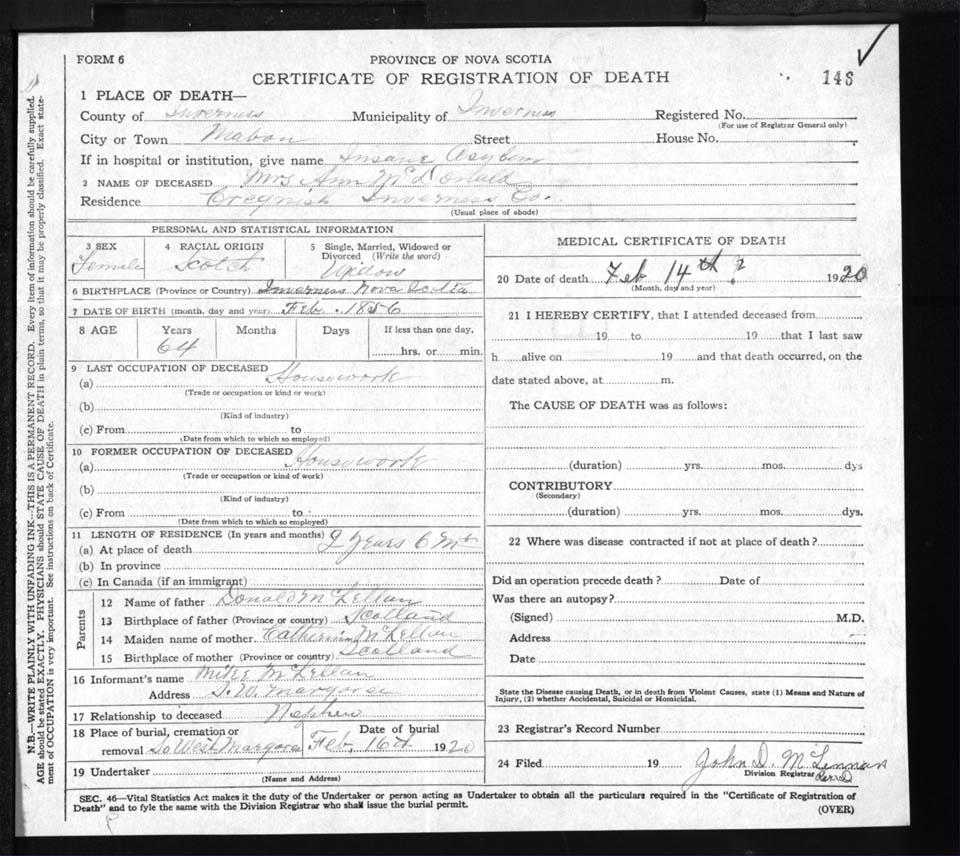 FORM 6
PROVINCE OF NOVA SCOTIA
CERTIFICATE OF REGISTRATION OF DEATH
148
1 PLACE OF DEATH—
County of Inverness Municipality of Inverness Registered No.
(For use of Registrar General only)
City or Town Mabou Street House No.
If in hospital or institution, give name Insane Asylum
2 NAME OF DECEASED Mrs Ann McDonald
Residence Creignish Inverness Co.
(Usual place of abode)
PERSONAL AND STATISTICAL INFORMATION
3 SEX Female
4 RACIAL ORIGIN Scotch
5 Single, Married, Widowed or Divorced (Write the word) Widow
6 BIRTHPLACE (Province or Country) Inverness Nova Scotia
7 DATE OF BIRTH (month, day and year) Feb. 1856
8 AGE Years Months Days If less than one day,
64 hrs. or min.
9 LAST OCCUPATION OF DECEASED
(a) Housework
(Trade or occupation or kind or work)
(b)
(Kind of industry)
(c) From to
(Date from which to which so employed)
10 FORMER OCCUPATION OF DECEASED
(a) Housework
(Trade or occupation or kind of work)
(b)
(Kind of industry)
(c) From to
(Date from which to which so employed)
11 LENGTH OF RESIDENCE (In years and months)
(a) At place of death 2 years 6 Mts
(b) In province
(c) In Canada (if an immigrant)
Parents
12 Name of father Donald McLellan
13 Birthplace of father (Province or country) Scotland
14 Maiden name of mother Catherine McLellan
15 Birthplace of mother (Province or country) Scotland
16 Informant's name McLellan
Address S.W. Margaree
17 Relationship to deceased Nephew
18 Place of burial, cremation or removal So West Margaree
Date of burial Feb. 16th 1920
19 Undertaker
(Name and Address)
MEDICAL CERTIFICATE OF DEATH
20 Date of death Feb 14th ? 1920
(Month, day and year)
21 I HEREBY CERTIFY, that I attended deceased from
19 to 19 that I last saw
h alive on 19 and that death occurred, on the
date stated above, at m.
The CAUSE OF DEATH was as follows:
(duration) yrs. mos. dys
CONTRIBUTORY
(Secondary)
(duration) yrs. mos. dys.
22 Where was disease contracted if not at place of death?
Did an operation precede death? Date of
Was there an autopsy?
(Signed) M.D.
Address
Date
State the Disease causing Death, or in death from Violent Causes, state (1) Means and Nature of
Injury, (2) whether Accidental, Suicidal or Homicidal.
23 Registrar's Record Number
24 Filed 19 John D. McLennan
Division Registrar
SEC. 46—Vital Statistics Act makes it the duty of the Undertaker or person acting as Undertaker to obtain all the particulars required in the "Certificate of Registration of
Death" and to fyle the same with the Division Registrar who shall issue the burial permit.
(OVER)
N.B.—WRITE PLAINLY WITH UNFADING INK—THIS IS A PERMANENT RECORD. Every item of information should be carefully supplied.
AGE should be stated EXACTLY. PHYSICIANS should STATE CAUSE OF DEATH in plain terms, so that it may be properly classified. Exact state-
ment of OCCUPATION is very important. See instructions on back of Certificate.